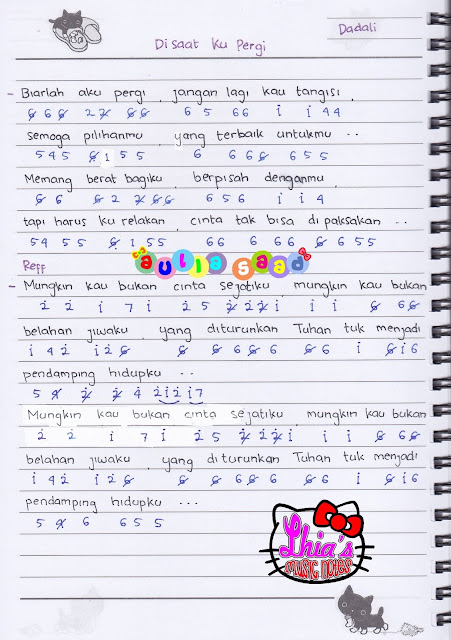 Dadali
Disaat Ku Pergi
- Biarlah aku pergi, jangan lagi kau tangisi,
6̸ 6 6̸ 2 2̸ 6̸ 6̸ 6 5 6 6 i i 4 4
semoga pilihanmu, yang terbaik untukmu ..
5 4 5 6̸ 1 5 5 6 6 6 6̸ 6 5 5
Memang berat bagiku, berpisah denganmu,
6̸ 6 6̸ 2 2̸ 6̸ 6̸ 6 5 6 i i 4
tapi harus ku relakan, cinta tak bisa di paksakan ..
5 4 5 5 6̸ 1 5 5 6 6 6 6 6 6̸ 6̸ 6 5 5
aulia saad
Reff
- Mungkin kau bukan cinta sejatiku, mungkin kau bukan
2̇ 2̇ i 7 i 2̇ 5 2̸̇ 2̇ 2̸̇ i i i 6̸ 6 6̸
belahan jiwaku, yang diturunkan Tuhan tuk menjadi
i 4 2̇ i 2̇ 6̸ 6̸ 6̸ 6 6̸ 6 6̸ 6 i 6̸ i 6
pendamping hidupku ...
5 4̸ 2̸̇ 2̸̇ 4 2̇ i 2̇ i 7
Mungkin kau bukan cinta sejatiku, mungkin kau bukan
2̇ 2̇ i 7 i 2̇ 5 2̸̇ 2̇ 2̸̇ i i i 6̸ 6 6̸
belahan jiwaku, yang diturunkan Tuhan tuk menjadi
i 4 2̇ i 2̇ 6̸ 6̸ 6̸ 6 6̸ 6 6̸ 6 i 6̸ i 6
pendamping hidupku ...
5 4̸ 6 6 5 5
Lhia's
MUSIC NOTES